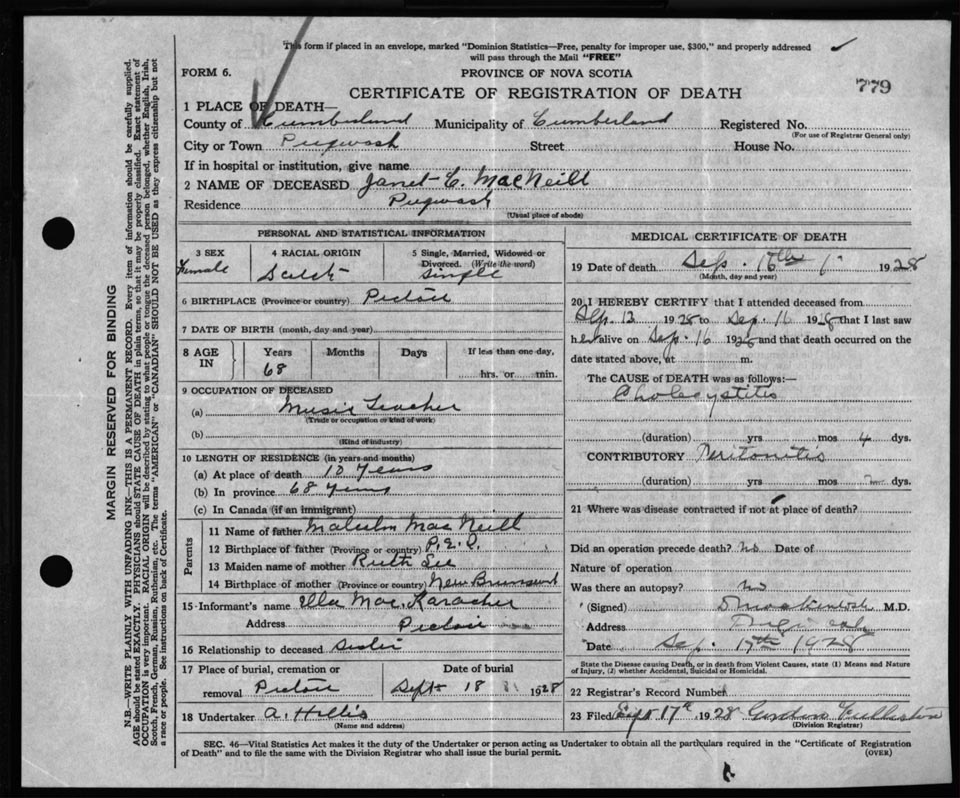 This form if placed in an envelope, marked "Dominion Statistics—Free, penalty for improper use, $300," and properly addressed
will pass through the Mail "FREE"
FORM 6. PROVINCE OF NOVA SCOTIA
CERTIFICATE OF REGISTRATION OF DEATH 779
1 PLACE OF DEATH—
County of Cumberland Municipality of Cumberland Registered No.
(For use of Registrar General only)
City or Town Pugwash Street House No.
If in hospital or institution, give name
2 NAME OF DECEASED Janet C. MacNeill
Residence Pugwash
(Usual place of abode)
PERSONAL AND STATISTICAL INFORMATION
3 SEX 4 RACIAL ORIGIN 5 Single, Married, Widowed or
Divorced. (Write the word)
Female Scotch Single
6 BIRTHPLACE (Province or country) Pictou
7 DATE OF BIRTH (month, day and year)
8 AGE IN Years Months Days If less than one day,
68 hrs. or min.
9 OCCUPATION OF DECEASED
(a) Music Teacher
(Trade or occupation or kind of work)
(b)
(Kind of industry)
10 LENGTH OF RESIDENCE (in years and months)
(a) At place of death 10 Years
(b) In province 68 years
(c) In Canada (if an immigrant)
Parents
11 Name of father Malcolm MacNeill
12 Birthplace of father (Province or country) P.E.I.
13 Maiden name of mother Ruth
14 Birthplace of mother (Province or country) New Brunswick
15 Informant's name Ella Mac
Address Pictou
16 Relationship to deceased Sister
17 Place of burial, cremation or Date of burial
removal Pictou Sept 18 1928
18 Undertaker A. Hollis
(Name and address)
MEDICAL CERTIFICATE OF DEATH
19 Date of death Sep. 1928
(Month, day and year)
20 I HEREBY CERTIFY that I attended deceased from
Sep. 13 1928 to Sep. 16 1928 that I last saw
her alive on Sep. 16 1928 and that death occurred on the
date stated above, at m.
The CAUSE of DEATH was as follows:—
Cholecystitis
(duration) yrs mos 4 dys.
CONTRIBUTORY Peritonitis
(duration) yrs. mos dys.
21 Where was disease contracted if not at place of death?
Did an operation precede death? no Date of
Nature of operation
Was there an autopsy? no
(Signed) M.D.
Address Pugwash
Date Sep. 17th 1928
State the Disease causing Death, or in death from Violent Causes, state (1) Means and Nature
of Injury, (2) whether Accidental, Suicidal or Homicidal.
22 Registrar's Record Number
23 Filed Sept 17th 1928 Gordon
(Division Registrar)
SEC. 46—Vital Statistics Act makes it the duty of the Undertaker or person acting as Undertaker to obtain all the particulars required in the "Certificate of Registration
of Death" and to file the same with the Division Registrar who shall issue the burial permit. (OVER)
MARGIN RESERVED FOR BINDING
N.B.—WRITE PLAINLY WITH UNFADING INK—THIS IS A PERMANENT RECORD. Every item of information should be carefully supplied.
AGE should be stated EXACTLY. PHYSICIANS should STATE CAUSE OF DEATH in plain terms, so that it may be properly classified. Exact statement of
OCCUPATION is very important. RACIAL ORIGIN will be described by stating to what people or tongue the deceased person belonged, whether English, Irish,
Scotch, French, German, Russian, Ruthenian, etc. The terms "AMERICAN" or "CANADIAN" SHOULD NOT BE USED as they express citizenship but not
a race or people. See instructions on back of Certificate.